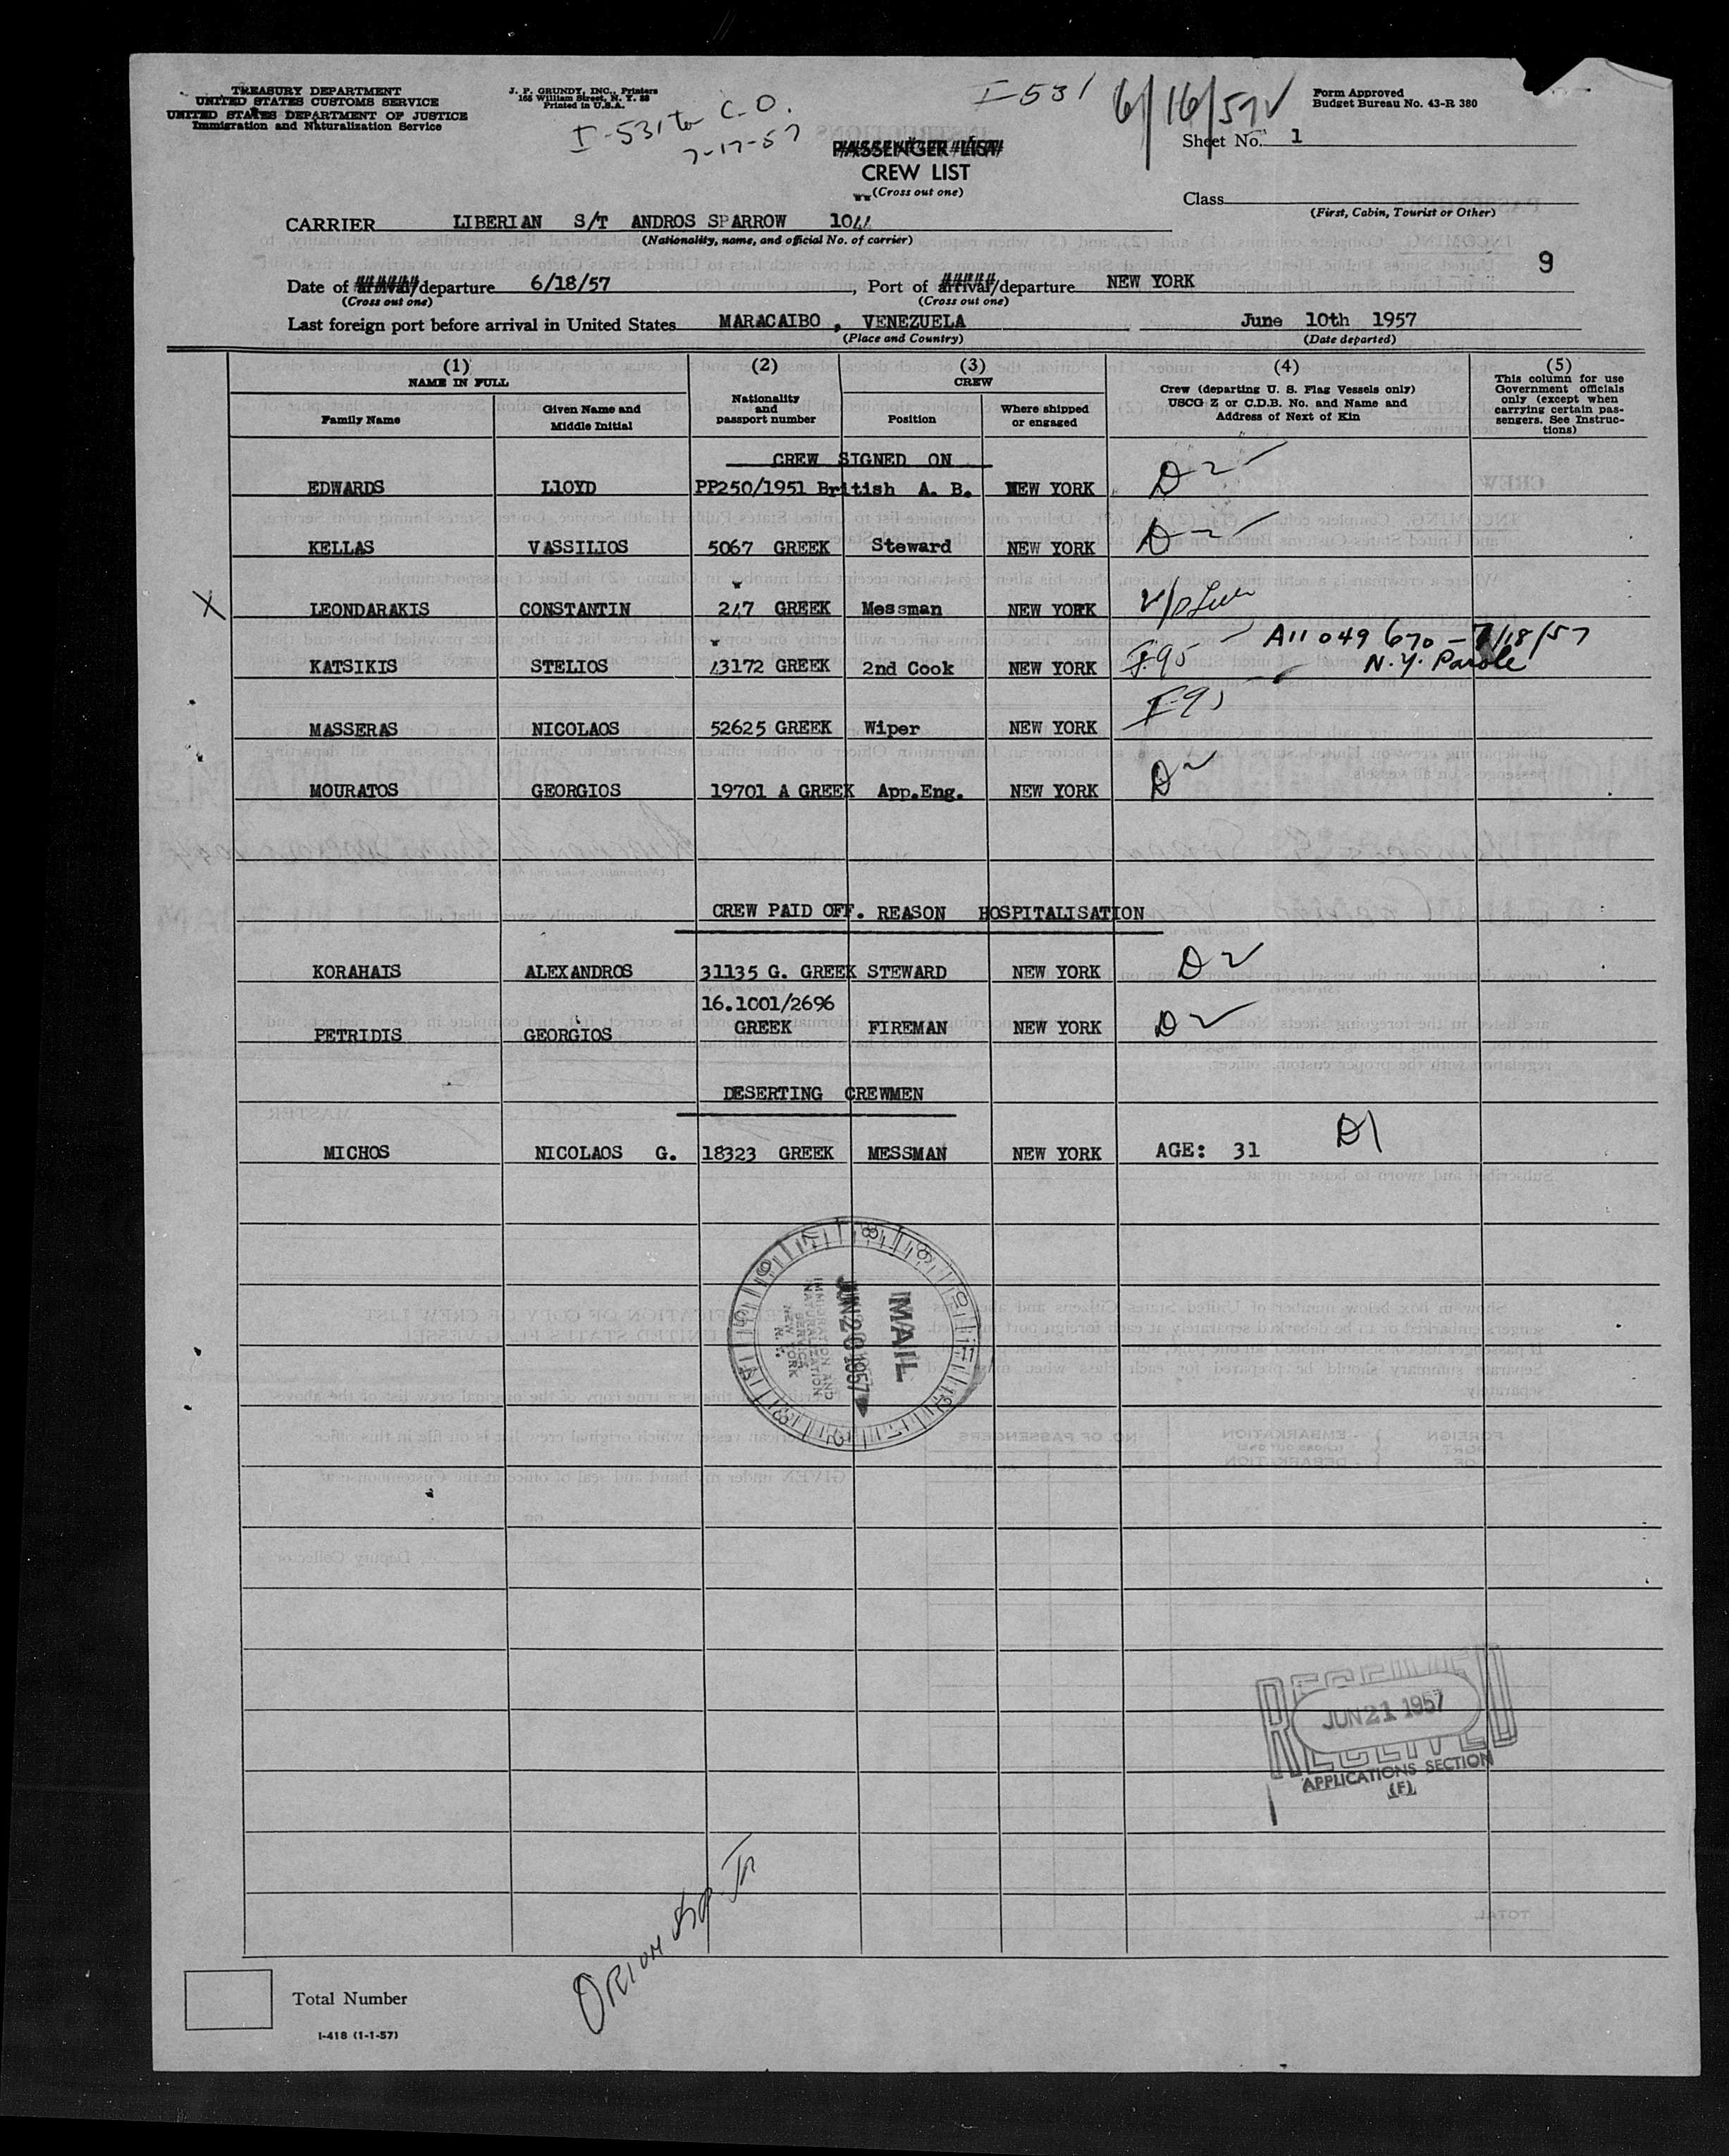 TREASURY DEPARTMENT
UNITED STATES CUSTOMS SERVICE
UNITED STATES DEPARTMENT OF JUSTICE
Immigration and Naturalization Service
J. P. GRUNDY, INC., Printers
165 William Street, N. Y. 38
Printed in U.S.A.
I-531 to C.O.
7-17-57
I-531
6/16/57
Form Approved
Budget Bureau No. 43-R 380
Sheet No. 1
PASSENGER LIST
CREW LIST
(Cross out one)
Class
(First, Cabin, Tourist or Other)
CARRIER LIBERIAN S/T ANDROS SPARROW 1044
(Nationality, name, and official No. of carrier)
9
Date of arrival/departure 6/18/57, Port of arrival/departure NEW YORK
(Cross out one) (Cross out one)
Last foreign port before arrival in United States MARACAIBO, VENEZUELA June 10th 1957
(Place and Country) (Date departed)
(1) (2) (3) (4) (5)
NAME IN FULL
Family Name
Given Name and Middle Initial
Nationality and passport number
CREW
Position
Where shipped or engaged
Crew (departing U. S. Flag Vessels only)
USCG Z or C.D.B. No. and Name and
Address of Next of Kin
This column for use
Government officials
only (except when
carrying certain pas-
sengers. See Instruc-
tions)
CREW SIGNED ON
EDWARDS LlOYD PP250/1951 British A. B. NEW YORK D
KELLAS VASSILIOS 5067 GREEK Steward NEW YORK D
X LEONDARAKIS CONSTANTIN 247 GREEK Messman NEW YORK
A11 049 670 - 7/18/57
N.Y. Parole
KATSIKIS STELIOS 43172 GREEK 2nd Cook NEW YORK I-95
MASSERAS NICOLAOS 52625 GREEK Wiper NEW YORK I-95
MOURATOS GEORGIOS 19701 A GREEK App.Eng. NEW YORK D
CREW PAID OFF. REASON HOSPITALISATION
KORAHAIS ALEXANDROS 31135 G. GREEK STEWARD NEW YORK D
16.1001/2696
PETRIDIS GEORGIOS GREEK FIREMAN NEW YORK D
DESERTING CREWMEN
MICHOS NICOLAOS G. 18323 GREEK MESSMAN NEW YORK AGE: 31 D1
MAIL
JUN 20 1957
IMMIGRATION AND
NATURALIZATION
SERVICE
NEW YORK
N. Y.
RECEIVED
JUN 21 1957
RECEIVED
APPLICATIONS SECTION
(F)
ORION
Total Number
I-418 (1-1-57)